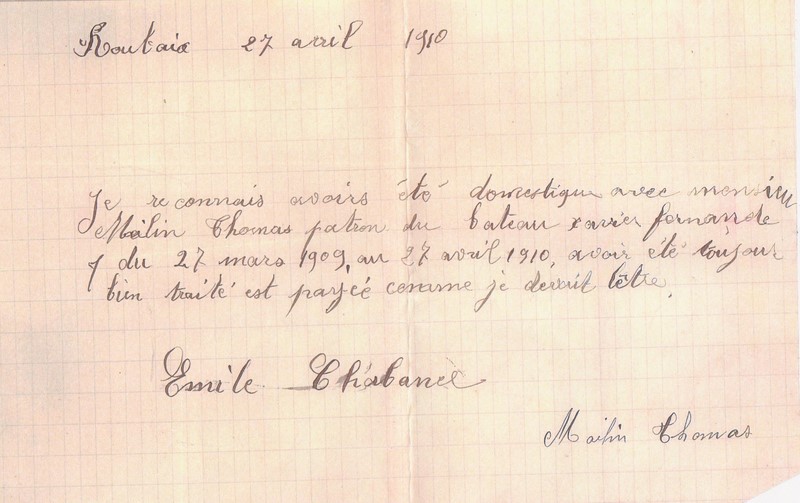 Roubaix 27 avril 1910
Je reconnais avoirs été domestique avec monsieu
Malin Thomas patron du bateau xavier fernande
du 27 mars 1909, au 27 avril 1910, avoir été toujour
bien traité est payéé comme je devait lêtre,
Emile Chabance
Malin Thomas